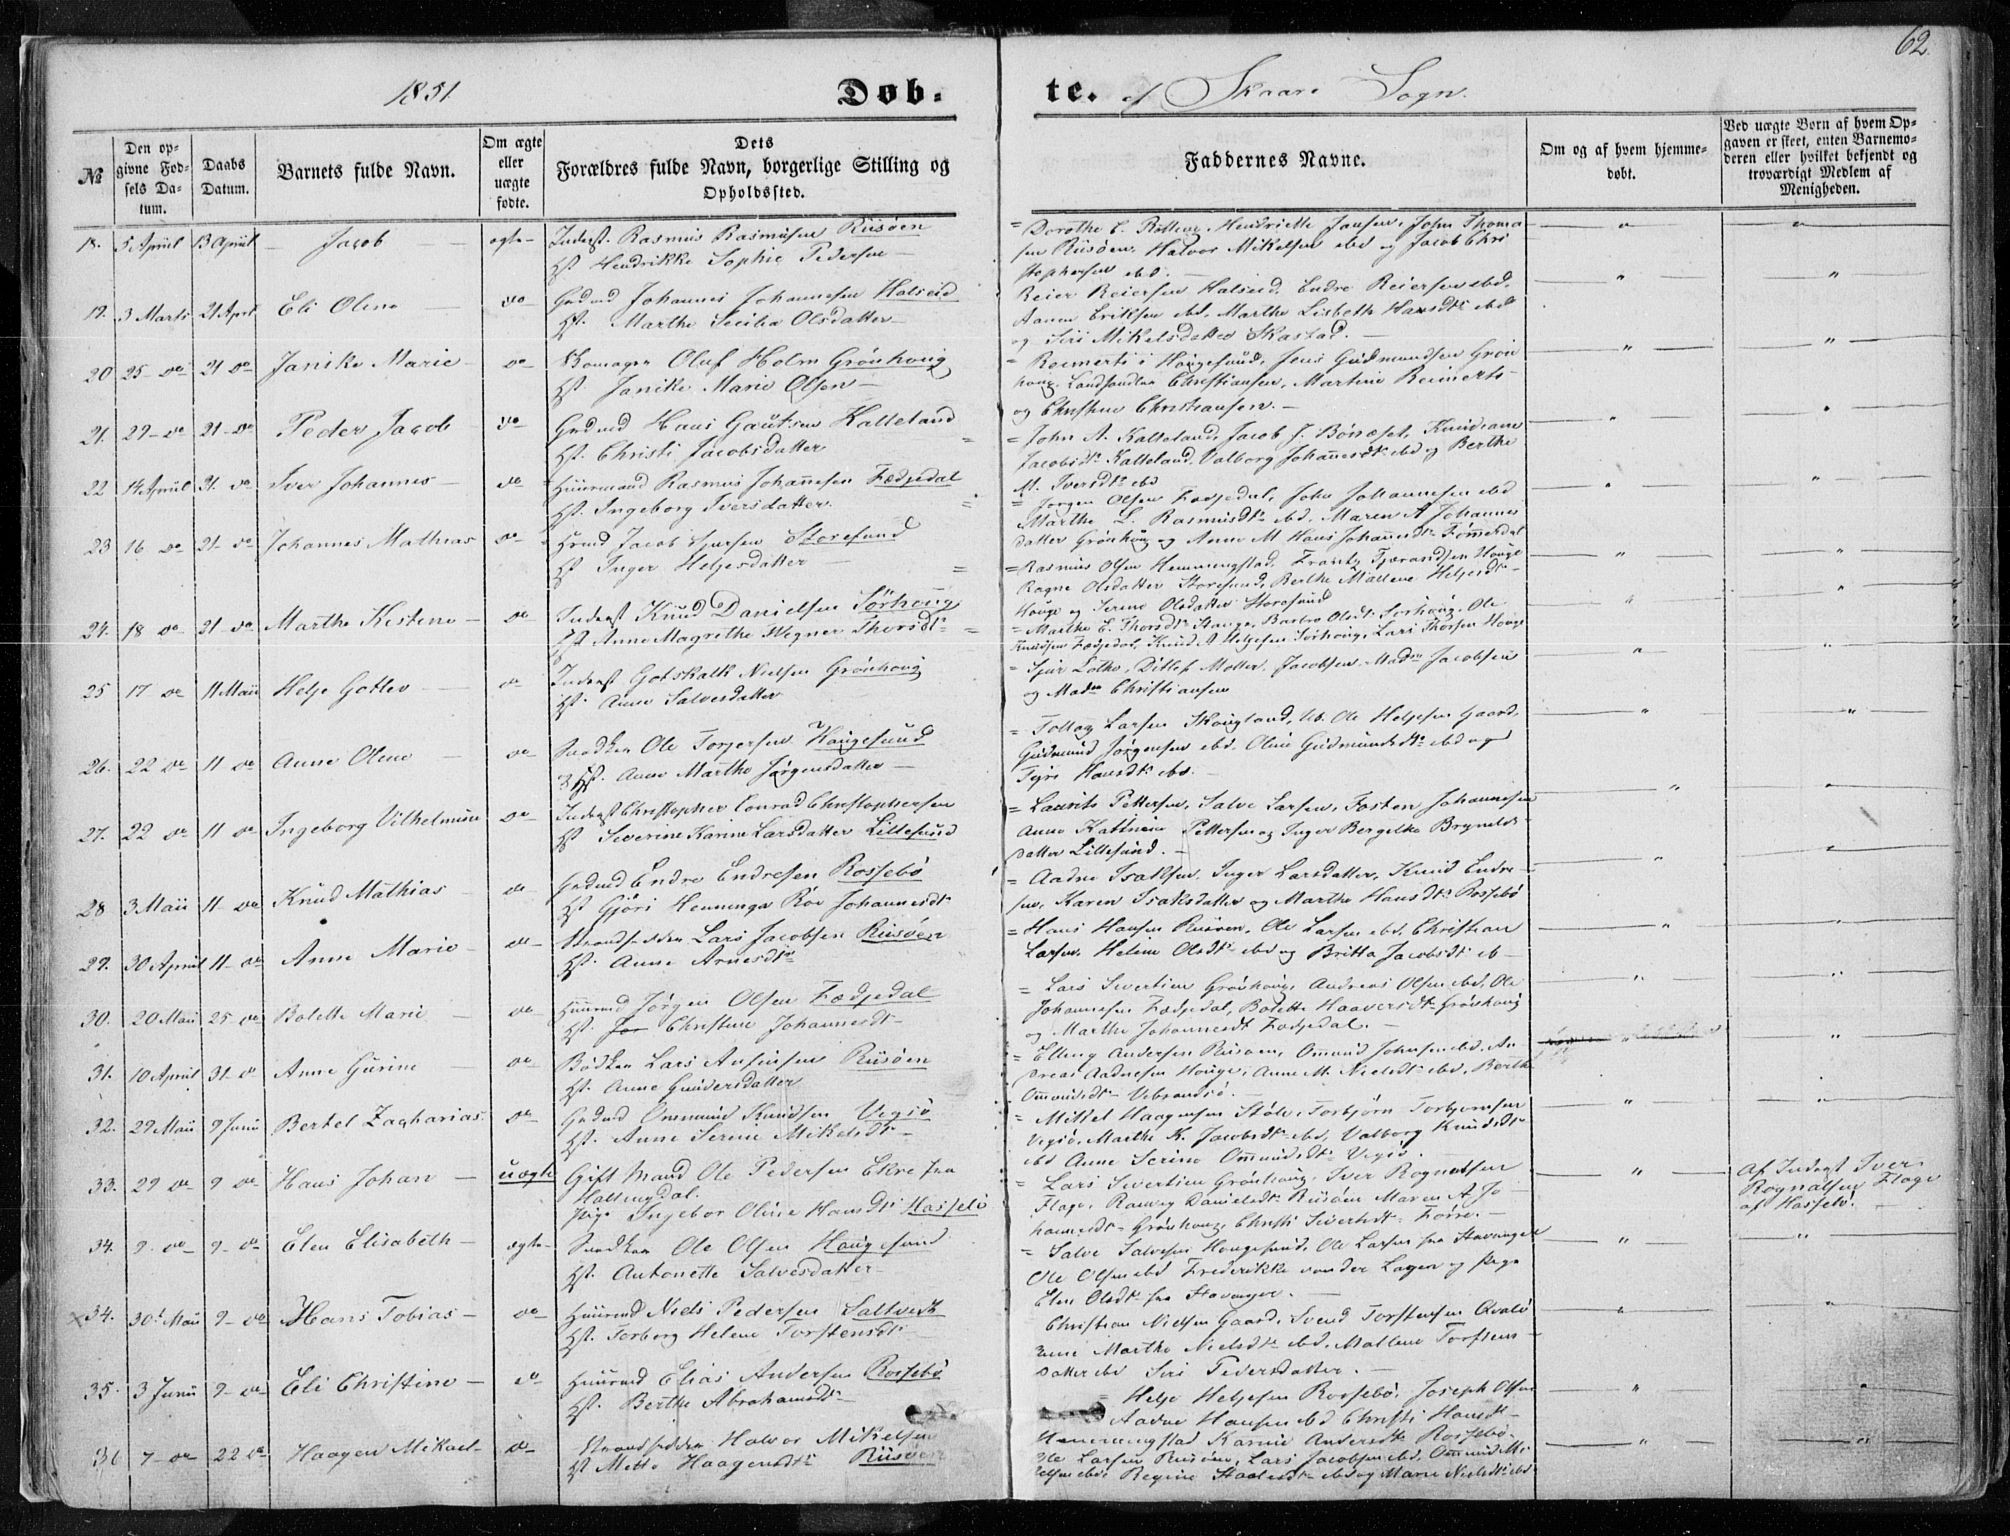 62.
1851
Døb-
te. af Skaare Sogn.
№
Den op-
givne Fød-
sels Da-
tum.
Daabs
Datum.
Barnets fulde Navn.
Om ægte
eller
uægte
fødte.
Dets
Forældres fulde Navn, borgerlige Stilling og
Opholdssted.
Faddernes Navne.
Om og af hvem hjemme-
døbt.
Ved uægte Børn af hvem Op-
gaven er skeet, enten Barnemo-
deren eller hvilket bekjendt og
troværdigt Medlem af
Menigheden.
18. 5 April 13 April Jacob ægte
Inderst. Rasmus Rasmusen Riisøen
Hst. Hendrikke Sophie Pedersen
= Dorothe C. Hendriette Jansen, John Thoma
sen Riisøen, Halvor Mikelsen ebd og Jacob Chri
stophersen ebd.
19. 3 Marts 21 April Eli Oline do
Gaard Johannes Johannesen Halseid
Hst. Marthe Secilia Olsdatter
Reier Reiersen Halseid, Endre Reiersen ebd,
Aanen Eriksen ebd, Marthe Lisbeth Hansdtr ebd
og Siri Mikelsdatter Skastad.
20 25 do 21 do Janike Marie do
Skomager Oluf Holm Grønhoug
Hst. Janike Marie Olsen
= Reinerts i Hougesund, Jens Gudmundsen Grøn
houg, Landhandler Christiansen, Martine Reinerts
og Christine Christiansen.
21. 29 do 21 do Peder Jacob do
Grdmd Hans Gautsen Kalleland
Hst. Christi Jacobsdatter
= John A. Kalleland, Jacob J. Knudiane
Jacobsdtr Kalleland, Valborg Johannesdtr ebd og Berthe
M. Iversdtr ebd
22 14 April 21 do Iver Johannes do
Huusmand Rasmus Johannesen Fædjedal
Hst. Ingeborg Iversdatter
= Jørgen Olsen Fædjedal, John Johannesen ebd
Marthe L. Rasmusdtr ebd, Maren A Johannes
datter Grønhoug og Anne M Hans Johannesdtr
23 16 do 21 do Johannes Mathias do
Hrmd Jacob Storesund
Hst. Inger Helgesdatter
= Rasmus Olsen Hemmingstad, Frantz Tjærandsen Houge
Ragne Olsdatter Storesund, Berthe Malene Helgesdtr
Houge og Serene Olsdatter Storesund
24. 18 do 21 do Marthe Kestene do
Inderst Knud Danielsen Sørhoug
Hst Anne Magrethe Wegner Thorsdtr
= Marthe E. Thorsdtr Hauge, Barbro Olsdtr Sørhoug, Ole
Knudsen Fædjedal, Knud A Helgesen Sørhoug, Lars Thorsen Houge
25 17 do 11 Maii Helje Gotlev do
Inderst Gotskalk Nielsen Grønhoug
Hst. Anne Salvesdatter
= Sjur Lothe, Ditlef Møller, Jacobsen, Madm Jacobsen
og Madm Christiansen
26. 22 do 11 do Anne Olene do
Snedker Ole Torgersen Haugesund
Hst. Anne Marthe Jørgensdatter
= Tollag Larsen Skougland, Ole Helgesen Gaard,
Gudmund Jørgensen ebd, Oline Gudmundsdtr ebd og
Hansdtr ebd.
27. 22 do 11 do Ingeborg Vilhelmine do
Inderst Christopher Conrad Christophersen
Hst Severine Karine Larsdatter Lillesund
= Laurits Pettersen, Salve Larsen, Tosten Johannesen
Anne Kathrine Pettersen og Inger Bergitte Bryneld-
datter Lillesund.
28 3 Maii 11 do Knud Mathias do
Grdmd Endre Endresen Rossebø
Hst Gjøri Henninga Røe Johannesdtr
= Aadne Isaksen, Inger Larsdatter, Knud Endre-
sen, Karen Isaksdatter og Marthe Hansdtr Rossebø
29. 30 April 11 do Anne Marie do
Strandsidder Lars Jacobsen Riisøen
Hst. Anne Arnesdtr
= Hans Hansen Riisøen, Ole Larsen ebd, Christian
Larsen, Helene Olsdtr ebd og Britta Jacobsdtr eb
30. 20 Maii 25 do Bolette Marie do
Huusmd Jørgen Olsen Fædjedal
Hst. Christine Johannesdtr
= Lars Sivertsen Grønhoug, Andreas Olsen ebd, Ole
Johannesen Fædjedal, Bolette Haaversdtr Grønhoug
og Marthe Johannesdtr Fædjedal.
31. 10 April 31 do Anne Gurine do
Bødker Lars Riisøen
Hst. Anne Gundersdatter
= Elling Andersen Riisøen, Omund Johnsen ebd, An
dreas Aadnesen Houge, Anne M. Nielsdtr ebd, Berthe
Ommundsdtr
32. 29 Maii 9 Junii Bertel Zacharias do
Grdmd Ommund Knudsen Vegsø
Hst. Anne Serine Mikelsdtr
= Mikkel Haagensen Støle, Torbjørn Torbjørnsen
Vigsø, Marthe K. Jacobsdtr ebd, Valborg Knudsdtr
ebd Anne Serine Ommundsdtr Vegsø
33. 29 do 9 do Hans Johan uægte
Gift Mand Ole Pedersen Ekre fra
Hallingdal.
Pige Ingebor Oline Hansdtr Hasselø
= Lars Sivertsen Grønhoug, Iver Rognalsen
Flage, Danielsdtr Riisøen Maren A. Jo
hannesdtr Grønhoug, Christi Siverhsdtr
Af Inderst Iver
Rognalsen Flage
af Hasselø.
34. 9 do 9 do Elen Elisabeth ægte
Snedker Ole Olsen Haugesund
Hst. Antonette Salvesdatter
= Salve Salvesen Hougesund, Ole Larsen fra Stavanger
Ole Olsen ebd Frederikke vonder Lagen og Pige
Elen Olsdtr fra Stavanger.
x34. 30t Maii 9 do Hans Tobias do
Huusmd Niels Pedersen Saltveit
Hst. Torberg Helene Torstensdtr
Christian Nielsen Gaard, Svend Torstensen Qvalø
Anne Marthe Nielsdtr ebd, Mallene Torstens
datter ebd Siri Pedersdatter.
35. 3 Junii 9 do Eli Christine do
Huusmd Elias Andersen Rossebø
Hst. Berthe Abrahamsdtr
= Helje Heljesen Rossebø, Joseph Olsen
Aadne Hansen ebd Christi Hansdtr
Hemmingstad Karine Andersdtr Rossebø.
36 7 do 22 do Haagen Mikael do
Strandsidder Halvor Mikelsen
Hst Mette Haagensdtr Riisøen
Ole Larsen Riisøen, Lars Jacobsen ebd, Ommund Mi
kelsen ebd, Regine ebd og Marie Nielsdtr ebd